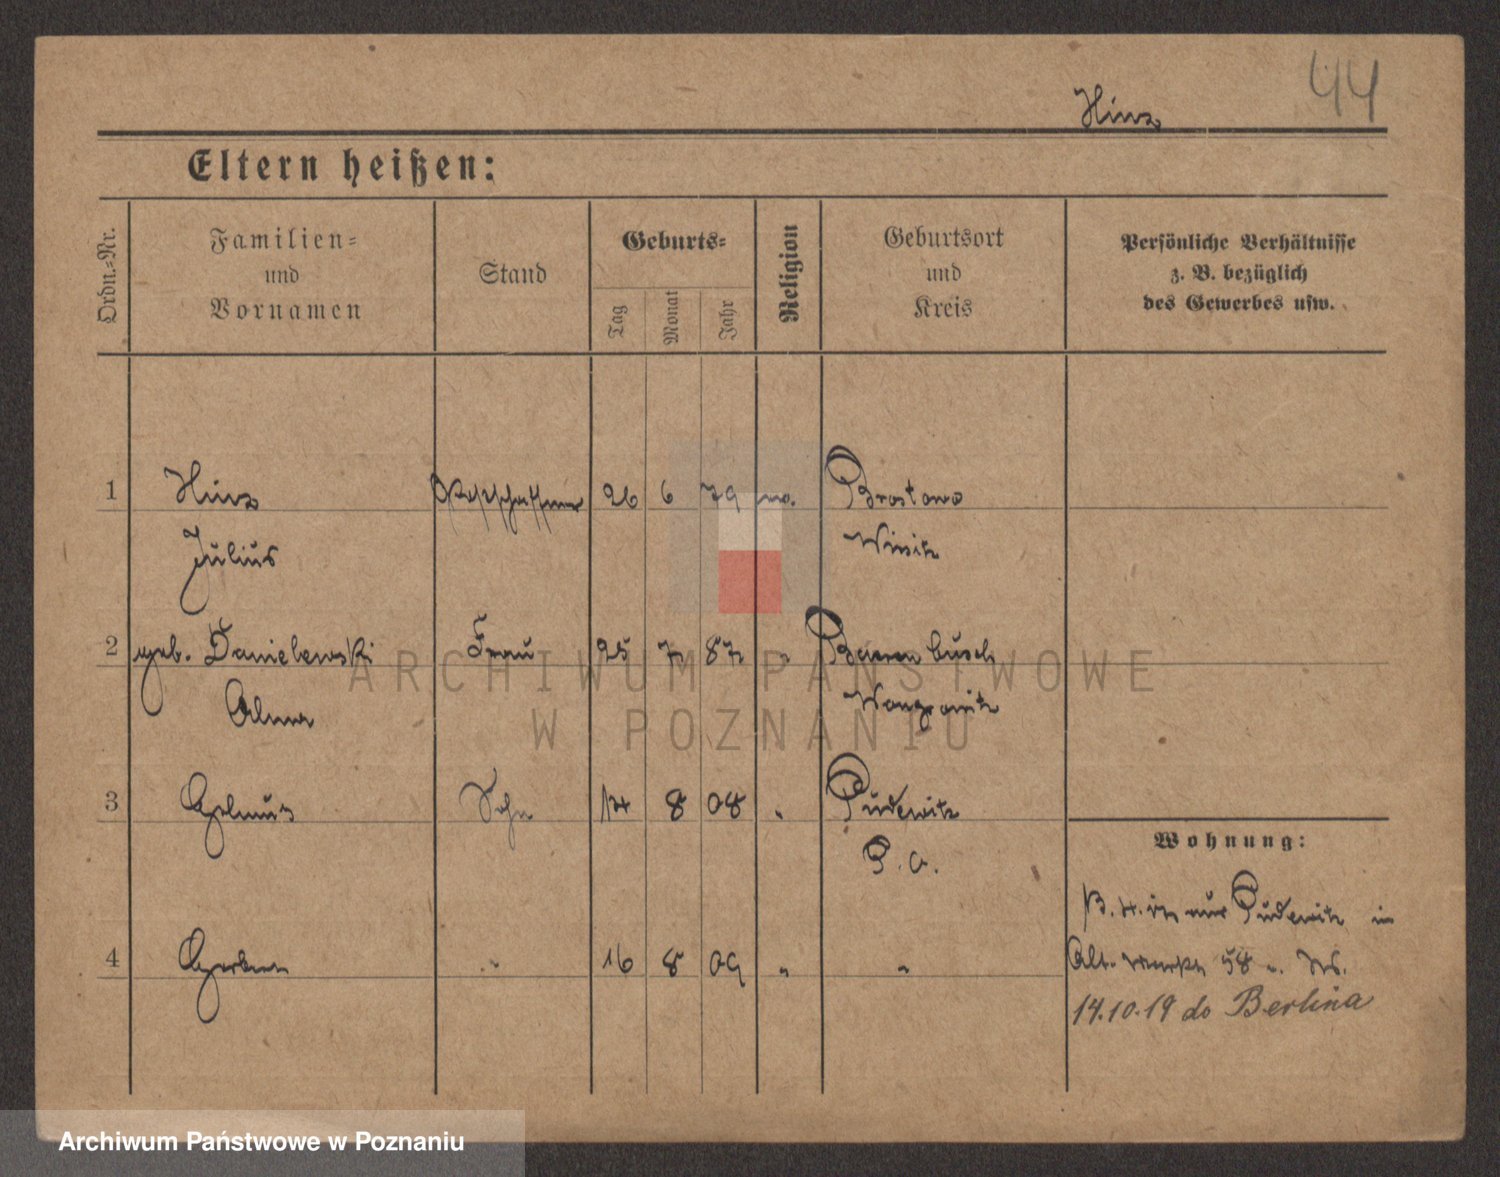 44
Hinz
Eltern heißen:
Ordn.-Nr.
Familien-
und
Vornamen
Stand
Geburts-
Tag
Monat
Jahr
Religion
Geburtsort
und
Kreis
Persönliche Verhältnisse
z. B. bezüglich
des Gewerbes usw.
1 Hinz 26 6 79 Brostowo
Julius Wirsitz
2 geb. Danielewski Frau 25 7 87 " Bauernbusch
Alma Wongrowitz
3 Helmut Sohn 14 8 08 " Pudewitz
P. O.
4 " 16 8 09 " "
Wohnung:
aus Pudewitz in
Alt. Markt 58
14.10.19 do Berlina
ARCHIWUM PAŃSTWOWE
W POZNANIU
Archiwum Państwowe w Poznaniu